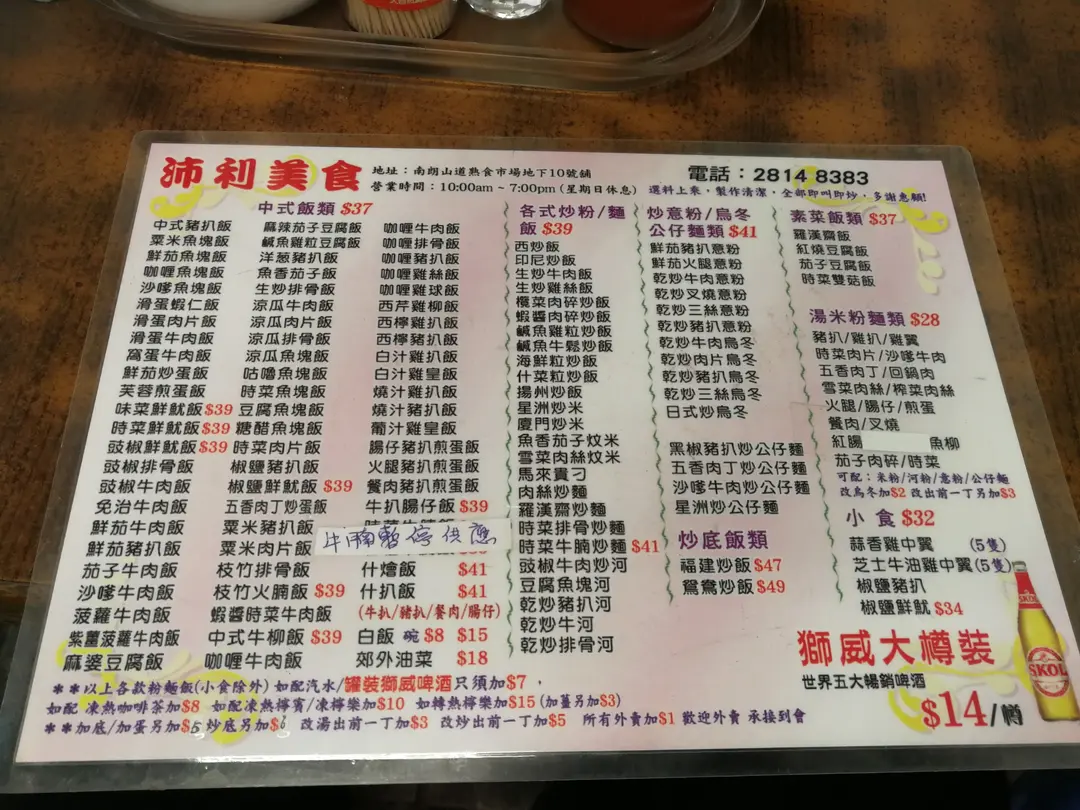 沛利美食
地址：南朗山道熟食市場地下10號舖
營業時間：10:00am ~ 7:00pm (星期日休息)
電話：2814 8383
選料上乘，製作清潔，全部即叫即炒，多謝惠顧!
中式飯類 $37
中式豬扒飯
粟米魚塊飯
鮮茄魚塊飯
咖喱魚塊飯
沙嗲魚塊飯
滑蛋蝦仁飯
滑蛋肉片飯
滑蛋牛肉飯
窩蛋牛肉飯
鮮茄炒蛋飯
芙蓉煎蛋飯
味菜鮮魷飯 $39
時菜鮮魷飯 $39
豉椒鮮魷飯 $39
豉椒排骨飯
豉椒牛肉飯
免治牛肉飯
鮮茄牛肉飯
鮮茄豬扒飯
茄子牛肉飯
沙嗲牛肉飯
菠蘿牛肉飯
紫薑菠蘿牛肉飯
麻婆豆腐飯
麻辣茄子豆腐飯
鹹魚雞粒豆腐飯
洋蔥豬扒飯
魚香茄子飯
生炒排骨飯
涼瓜牛肉飯
涼瓜肉片飯
涼瓜排骨飯
涼瓜魚塊飯
咕嚕魚塊飯
時菜魚塊飯
豆腐魚塊飯
糖醋魚塊飯
時菜肉片飯
椒鹽豬扒飯
椒鹽鮮魷飯 $39
五香肉丁炒蛋飯
粟米豬扒飯
粟米肉片飯
枝竹排骨飯
枝竹火腩飯 $39
蝦醬時菜牛肉飯
中式牛柳飯 $39
咖喱牛肉飯
咖喱牛肉飯
咖喱排骨飯
咖喱豬扒飯
咖喱雞絲飯
咖喱雞球飯
西芹雞柳飯
西檸雞扒飯
西檸豬扒飯
白汁雞扒飯
白汁雞皇飯
燒汁雞扒飯
燒汁豬扒飯
葡汁雞扒飯
腸仔豬扒煎蛋飯
火腿豬扒煎蛋飯
餐肉豬扒煎蛋飯
牛扒腸仔飯 $39
牛腩暫停供應
什燴飯 $41
什扒飯 $41
(牛扒/豬扒/餐肉/腸仔)
白飯 碗 $8 $15
郊外油菜 $18
各式炒粉/麵
飯 $39
西炒飯
印尼炒飯
生炒牛肉飯
生炒雞絲飯
欖菜肉碎炒飯
蝦醬肉碎炒飯
鹹魚雞粒炒飯
鹹魚牛鬆炒飯
海鮮粒炒飯
什菜粒炒飯
揚州炒飯
星洲炒米
廈門炒米
魚香茄子炆米
雪菜肉絲炆米
馬來貴刁
肉絲炒麵
羅漢齋炒麵
時菜排骨炒麵
時菜牛腩炒麵 $41
豉椒牛肉炒河
豆腐魚塊河
乾炒豬扒河
乾炒牛河
乾炒排骨河
炒意粉/烏冬
公仔麵類 $41
鮮茄豬扒意粉
鮮茄火腿意粉
乾炒牛肉意粉
乾炒叉燒意粉
乾炒三絲意粉
乾炒豬扒意粉
乾炒牛肉烏冬
乾炒肉片烏冬
乾炒豬扒烏冬
乾炒三絲烏冬
日式炒烏冬
黑椒豬扒炒公仔麵
五香肉丁炒公仔麵
沙嗲牛肉炒公仔麵
星洲炒公仔麵
炒底飯類
福建炒飯 $47
鴛鴦炒飯 $49
素菜飯類 $37
羅漢齋飯
紅燒豆腐飯
茄子豆腐飯
時菜雙菇飯
湯米粉麵類 $28
豬扒/雞扒/雞翼
時菜肉片/沙嗲牛肉
五香肉丁/回鍋肉
雪菜肉絲/榨菜肉絲
火腿/腸仔/煎蛋
餐肉/叉燒
紅腸 魚柳
茄子肉碎/時菜
可配：米粉/河粉/意粉/公仔麵
改烏冬加$2 改出前一丁另加$3
小食 $32
蒜香雞中翼 (5隻)
芝士牛油雞中翼 (5隻)
椒鹽豬扒
椒鹽鮮魷 $34
獅威大樽裝
世界五大暢銷啤酒
$14/樽
SKOL
**以上各款粉麵飯(小食除外) 如配汽水/罐裝獅威啤酒只須加$7，
如配 凍熱咖啡茶加$8 如配凍熱檸賓/凍檸樂加$10 如轉熱檸樂加$15 (加薑另加$3)
**加底/加蛋另加$5 炒底另加$6 改湯出前一丁加$3 改炒出前一丁加$5 所有外賣加$1 歡迎外賣 承接到會